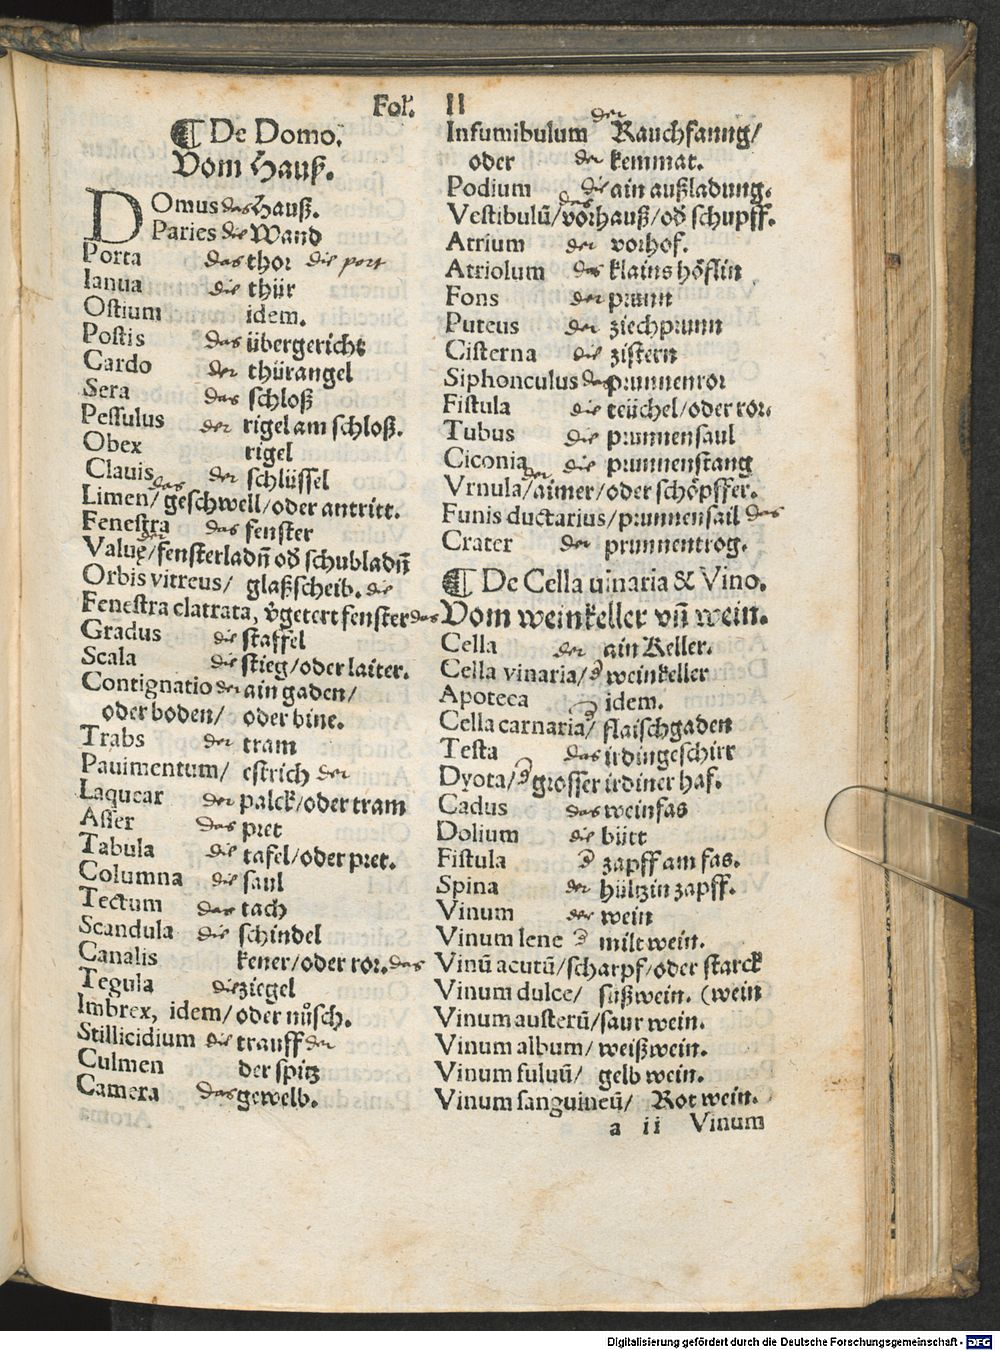 Fol. II
¶ De Domo.
Vom Hauß.
DOmus das Hauß.
Paries die Wand
Porta das thor die port
Ianua die thür
Ostium idem.
Postis das übergericht
Cardo der thürangel
Sera das schloß
Pessulus der rigel am schloß.
Obex rigel
Clauis der schlüssel
Limen/ das geschwell/oder antritt.
Fenestra das fenster
Valuę/ der fensterladñ od̄ schubladñ
Orbis vitreus/ glaßscheib. die
Fenestra clatrata, v̊getert fenster das
Gradus die staffel
Scala die stieg/oder laiter.
Contignatio der ain gaden/
oder boden/ oder bine.
Trabs der tram
Pauimentum/ estrich der
Laquear der palck/oder tram
Asser das pret
Tabula die tafel/oder pret.
Columna die saul
Tectum das tach
Scandula die schindel
Canalis kener/oder ror. das
Tegula die ziegel
Imbrex, idem/oder nůsch.
Stillicidium die trauff der
Culmen der spitz
Camera das gewelb.
Infumibulum der Rauchfanng/
oder der kemmat.
Podium die ain außladung.
Vestibulū/ das vorhauß/od̄ schupff.
Atrium der vorhof.
Atriolum das klains höflin
Fons der prunn
Puteus der ziechprunn
Cisterna die zistern
Siphonculus das prunnenror
Fistula die teüchel/oder ror.
Tubus die prunnensaul
Ciconia die prunnenstang
Vrnula/ der aimer/oder schöpffer.
Funis ductarius/prunnensail das
Crater der prunnentrog.
¶ De Cella uinaria & Vino.
Vom weinkeller vñ wein.
Cella der ain Keller.
Cella vinaria/ d weinkeller
Apoteca idem.
Cella carnaria/ d flaischgaden
Testa das irdingeschirr
Dyota/ d grosser irdiner haf.
Cadus das weinfas
Dolium die bütt
Fistula d zapff am fas.
Spina der hültzin zapff.
Vinum der wein
Vinum lene d milt wein.
Vinū acutū/scharpf/oder starck
Vinum dulce/ süßwein. (wein
Vinum austerū/saur wein.
Vinum album/ weißwein.
Vinum fuluū/ gelb wein.
Vinum sanguineū/ Rot wein.
a ii Vinum
Digitalisierung gefördert durch die Deutsche Forschungsgemeinschaft - DFG